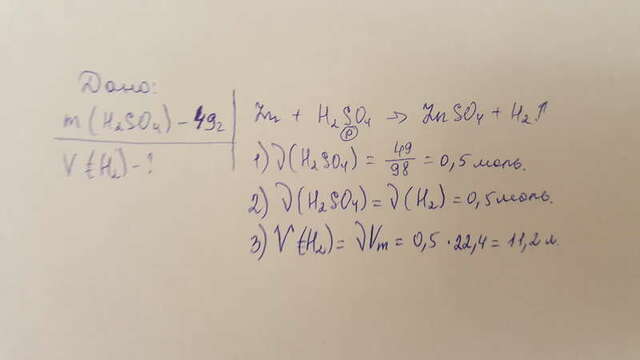 Дано:
m(H₂SO₄) - 49г
V(H₂) - ?
Zn + H₂SO₄ → ZnSO₄ + H₂↑
(р)
1) ν(H₂SO₄) = 49/98 = 0,5 моль.
2) ν(H₂SO₄) = ν(H₂) = 0,5 моль.
3) V(H₂) = νVm = 0,5 · 22,4 = 11,2 л.